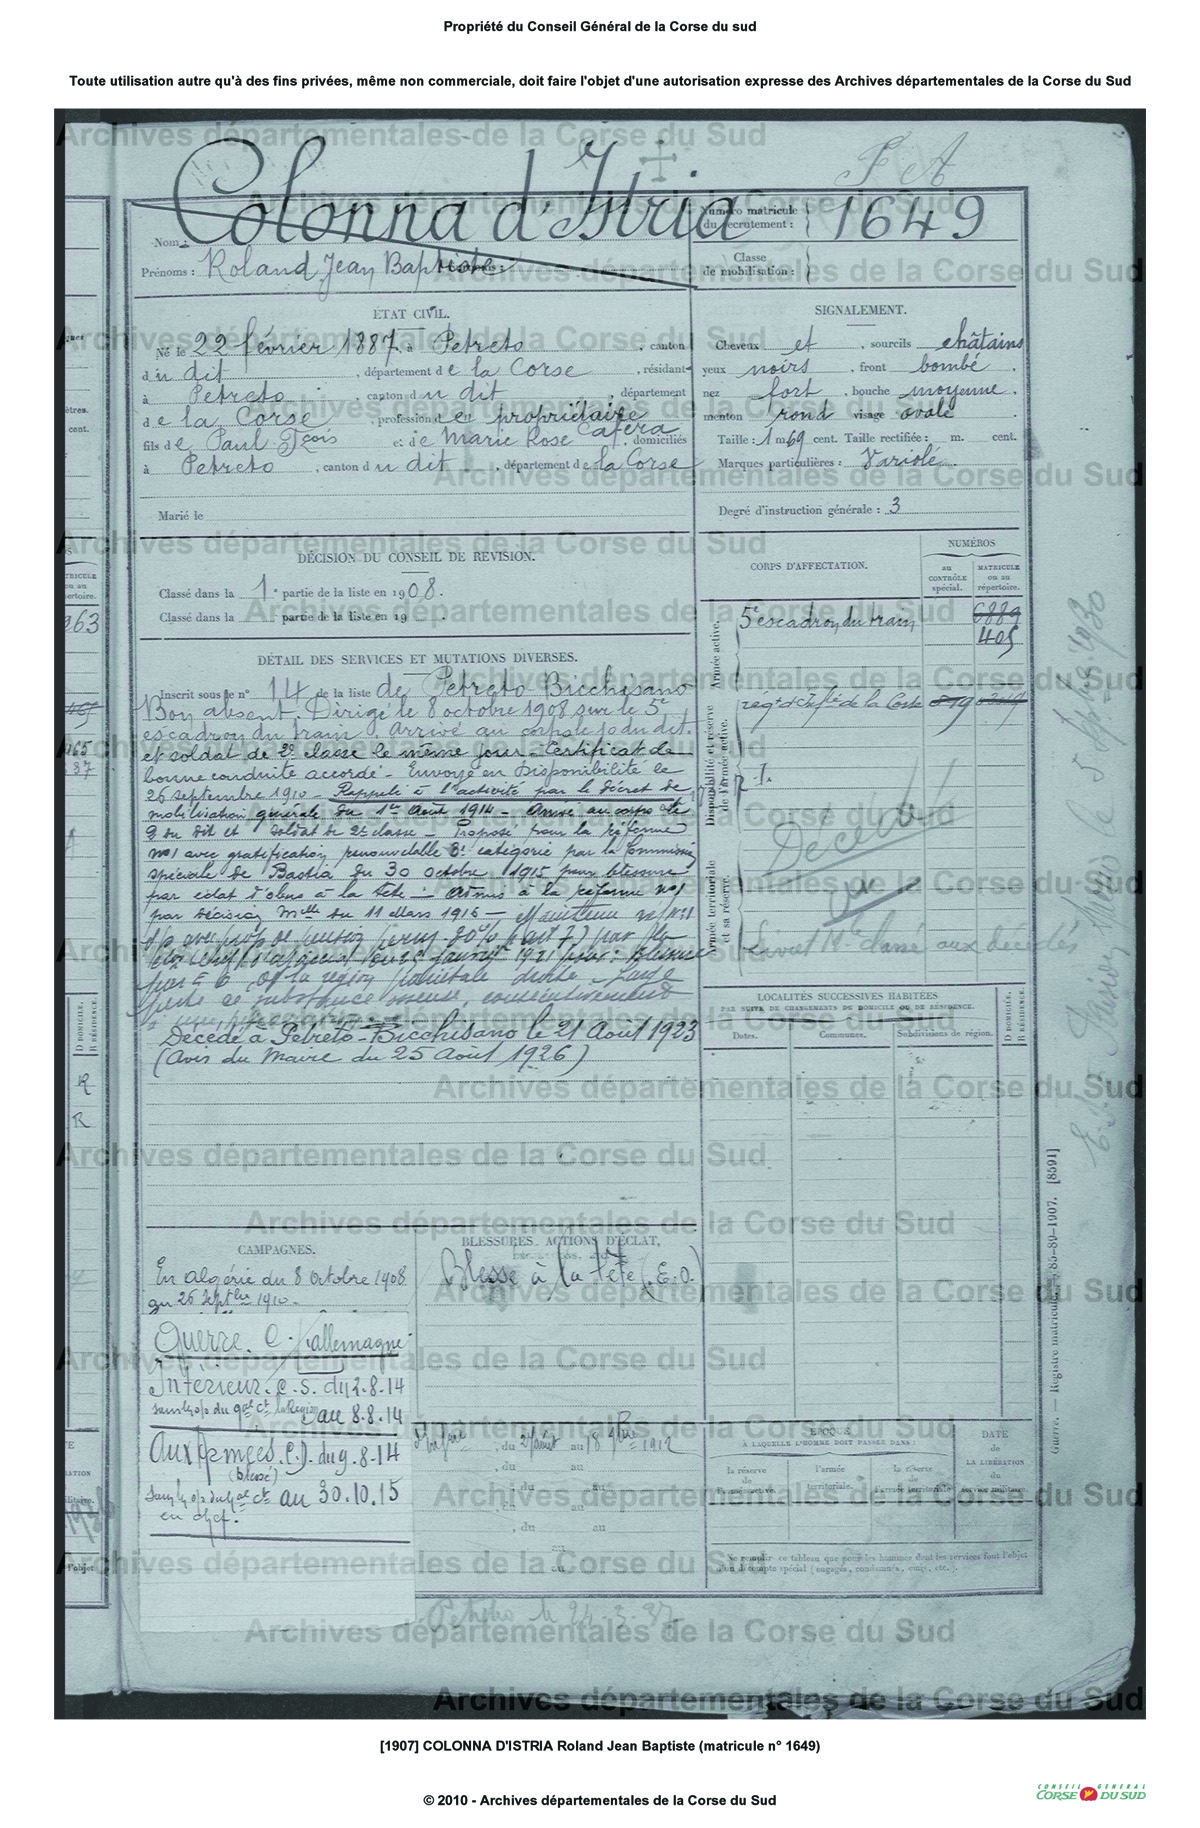 Propriété du Conseil Général de la Corse du sud
Toute utilisation autre qu'à des fins privées, même non commerciale, doit faire l'objet d'une autorisation expresse des Archives départementales de la Corse du Sud
Archives départementales de la Corse du Sud
F A
Nom : Colonna d'Istria
Numéro matricule du recrutement : 1649
Prénoms : Roland Jean Baptiste
Classe de mobilisation :
ÉTAT CIVIL.
Né le 22 février 1887, à Petreto, canton
du dit, département de la Corse, résidant
à Petreto, canton du dit, département
de la Corse, profession de propriétaire
fils de Paul Fçois et de Marie Rose domiciliés
à Petreto, canton du dit, département de la Corse
Marié le
SIGNALEMENT.
Cheveux et, sourcils châtains
yeux noirs, front bombé.
nez fort, bouche moyenne.
menton rond visage ovale
Taille : 1 m 69 cent. Taille rectifiée : m. cent.
Marques particulières : Variolé
Degré d'instruction générale : 3
DÉCISION DU CONSEIL DE REVISION.
Classé dans la 1e partie de la liste en 1908.
Classé dans la partie de la liste en 19
DÉTAIL DES SERVICES ET MUTATIONS DIVERSES.
Inscrit sous le n° 14 de la liste de Petreto Bicchisano
Bon absent. Dirigé le 8 octobre 1908 sur le 5e
escadron du train. Arrivé au corps le 10 du dit
et soldat de 2e classe le même jour. Certificat de
bonne conduite accordé. Envoyé en disponibilité le
26 septembre 1910. Rappelé à l'activité par le décret de
mobilisation générale du 1er Août 1914. Arrivé au corps le
9 du dit et soldat de 2e classe. Proposé pour la réforme
n°1 avec gratification renouvelable 8e catégorie par la Commission
spéciale de Bastia du 30 octobre 1915 pour blessure
par éclat d'obus à la tête. Admis à la réforme n°1
par décision Mlle du 11 Mars 1916 — Maintenu
région pariétale droite
perte de substance osseuse, consécutivement
Décédé à Petreto-Bicchisano le 21 Août 1923
(Avis du Maire du 25 Août 1926)
CORPS D'AFFECTATION.
NUMÉROS
au CONTRÔLE spécial.
MATRICULE ou au répertoire.
Armée active.
5e escadron du train
6889
405
Disponibilité et réserve de l'armée active.
régt d'Inf.ie de la Corse
Armée territoriale et sa réserve.
Décédé
Livret Mle classé aux décédés
LOCALITÉS SUCCESSIVES HABITÉES
PAR SUITE DE CHANGEMENTS DE DOMICILE OU DE RÉSIDENCE.
Dates.
Communes.
Subdivisions de région.
D DOMICILE.
R RÉSIDENCE.
CAMPAGNES.
En Algérie du 8 Octobre 1908
au 26 Septbre 1910.
Guerre C. Allemagne
Intérieur. C. S. du 2.8.14
au 8.8.14
Aux Armées. C. D. du 9.8.14
(blessé)
au 30.10.15
en chef.
BLESSURES, ACTIONS D'ÉCLAT,
Blessé à la tête (E.O.)
du août au 1912
, du au
, du au
, du au
, du au
ÉPOQUE
À LAQUELLE L'HOMME DOIT PASSER DANS :
la réserve de l'armée active.
l'armée territoriale.
la réserve de l'armée territoriale
DATE de LA LIBÉRATION du service militaire.
Ne remplir ce tableau que pour les hommes dont les services font l'objet
d'un décompte spécial (engagés, condamnés, omis, etc.).
Guerre. — Registre matricule. 785-89-1907. [8591]
[1907] COLONNA D'ISTRIA Roland Jean Baptiste (matricule n° 1649)
© 2010 - Archives départementales de la Corse du Sud
CONSEIL GENERAL
CORSE DU SUD